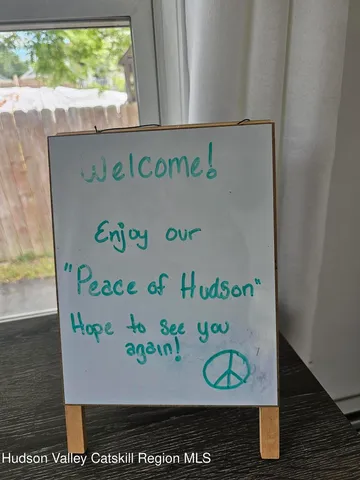 Welcome!
Enjoy our
"Peace of Hudson"
Hope to see you
again!
Hudson Valley Catskill Region MLS